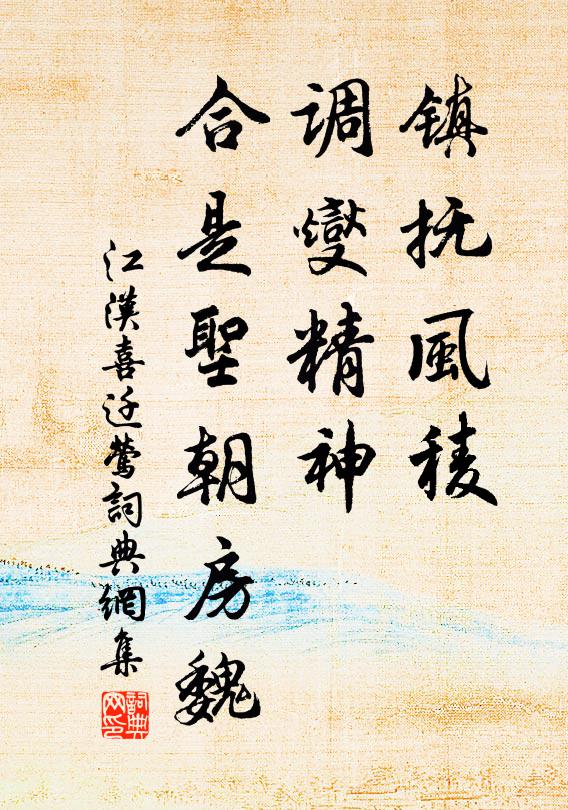 镇抚風稜
調燮精神
合是聖朝房魏
江漢喜迁莺詞典網集
詞典网印